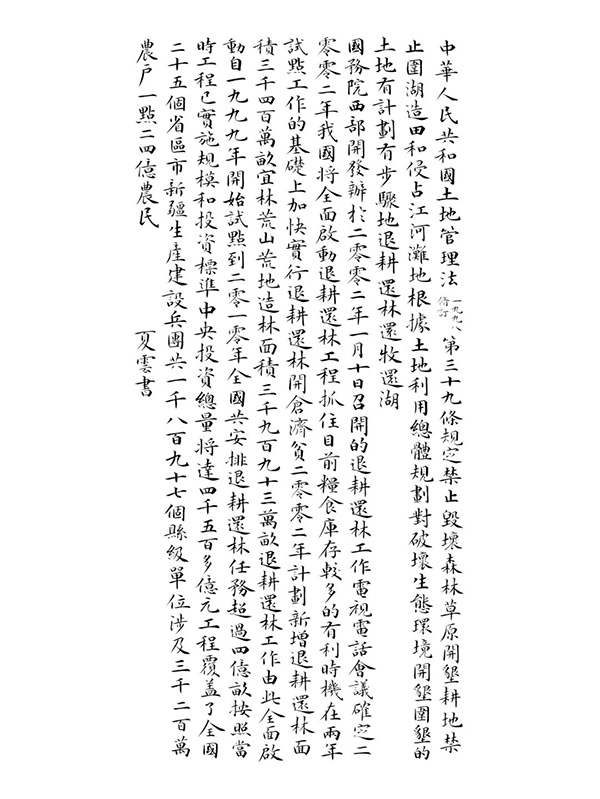 中華人民共和國土地管理法一九九八修訂第三十九條規定禁止毀壞森林草原開墾耕地禁
止圍湖造田和侵占江河灘地根據土地利用總體規劃對破壞生態環境開墾圍墾的
土地有計劃有步驟地退耕還林還牧還湖
國務院西部開發辦於二零零二年一月十日召開的退耕還林工作電視電話會議確定二
零零二年我國將全面啟動退耕還林工程抓住目前糧食庫存較多的有利時機在兩年
試點工作的基礎上加快實行退耕還林開倉濟貧二零零二年計劃新增退耕還林面
積三千四百萬畝宜林荒山荒地造林面積三千九百九十三萬畝退耕還林工作由此全面啟
動自一九九九年開始試點到二零一零年全國共安排退耕還林任務超過四億畝按照當
時工程已實施規模和投資標準中央投資總量將達四千五百多億元工程覆蓋了全國
二十五個省區市新疆生產建設兵團共一千八百九十七個縣級單位涉及三千二百萬
農户一點二四億農民
夏雲書